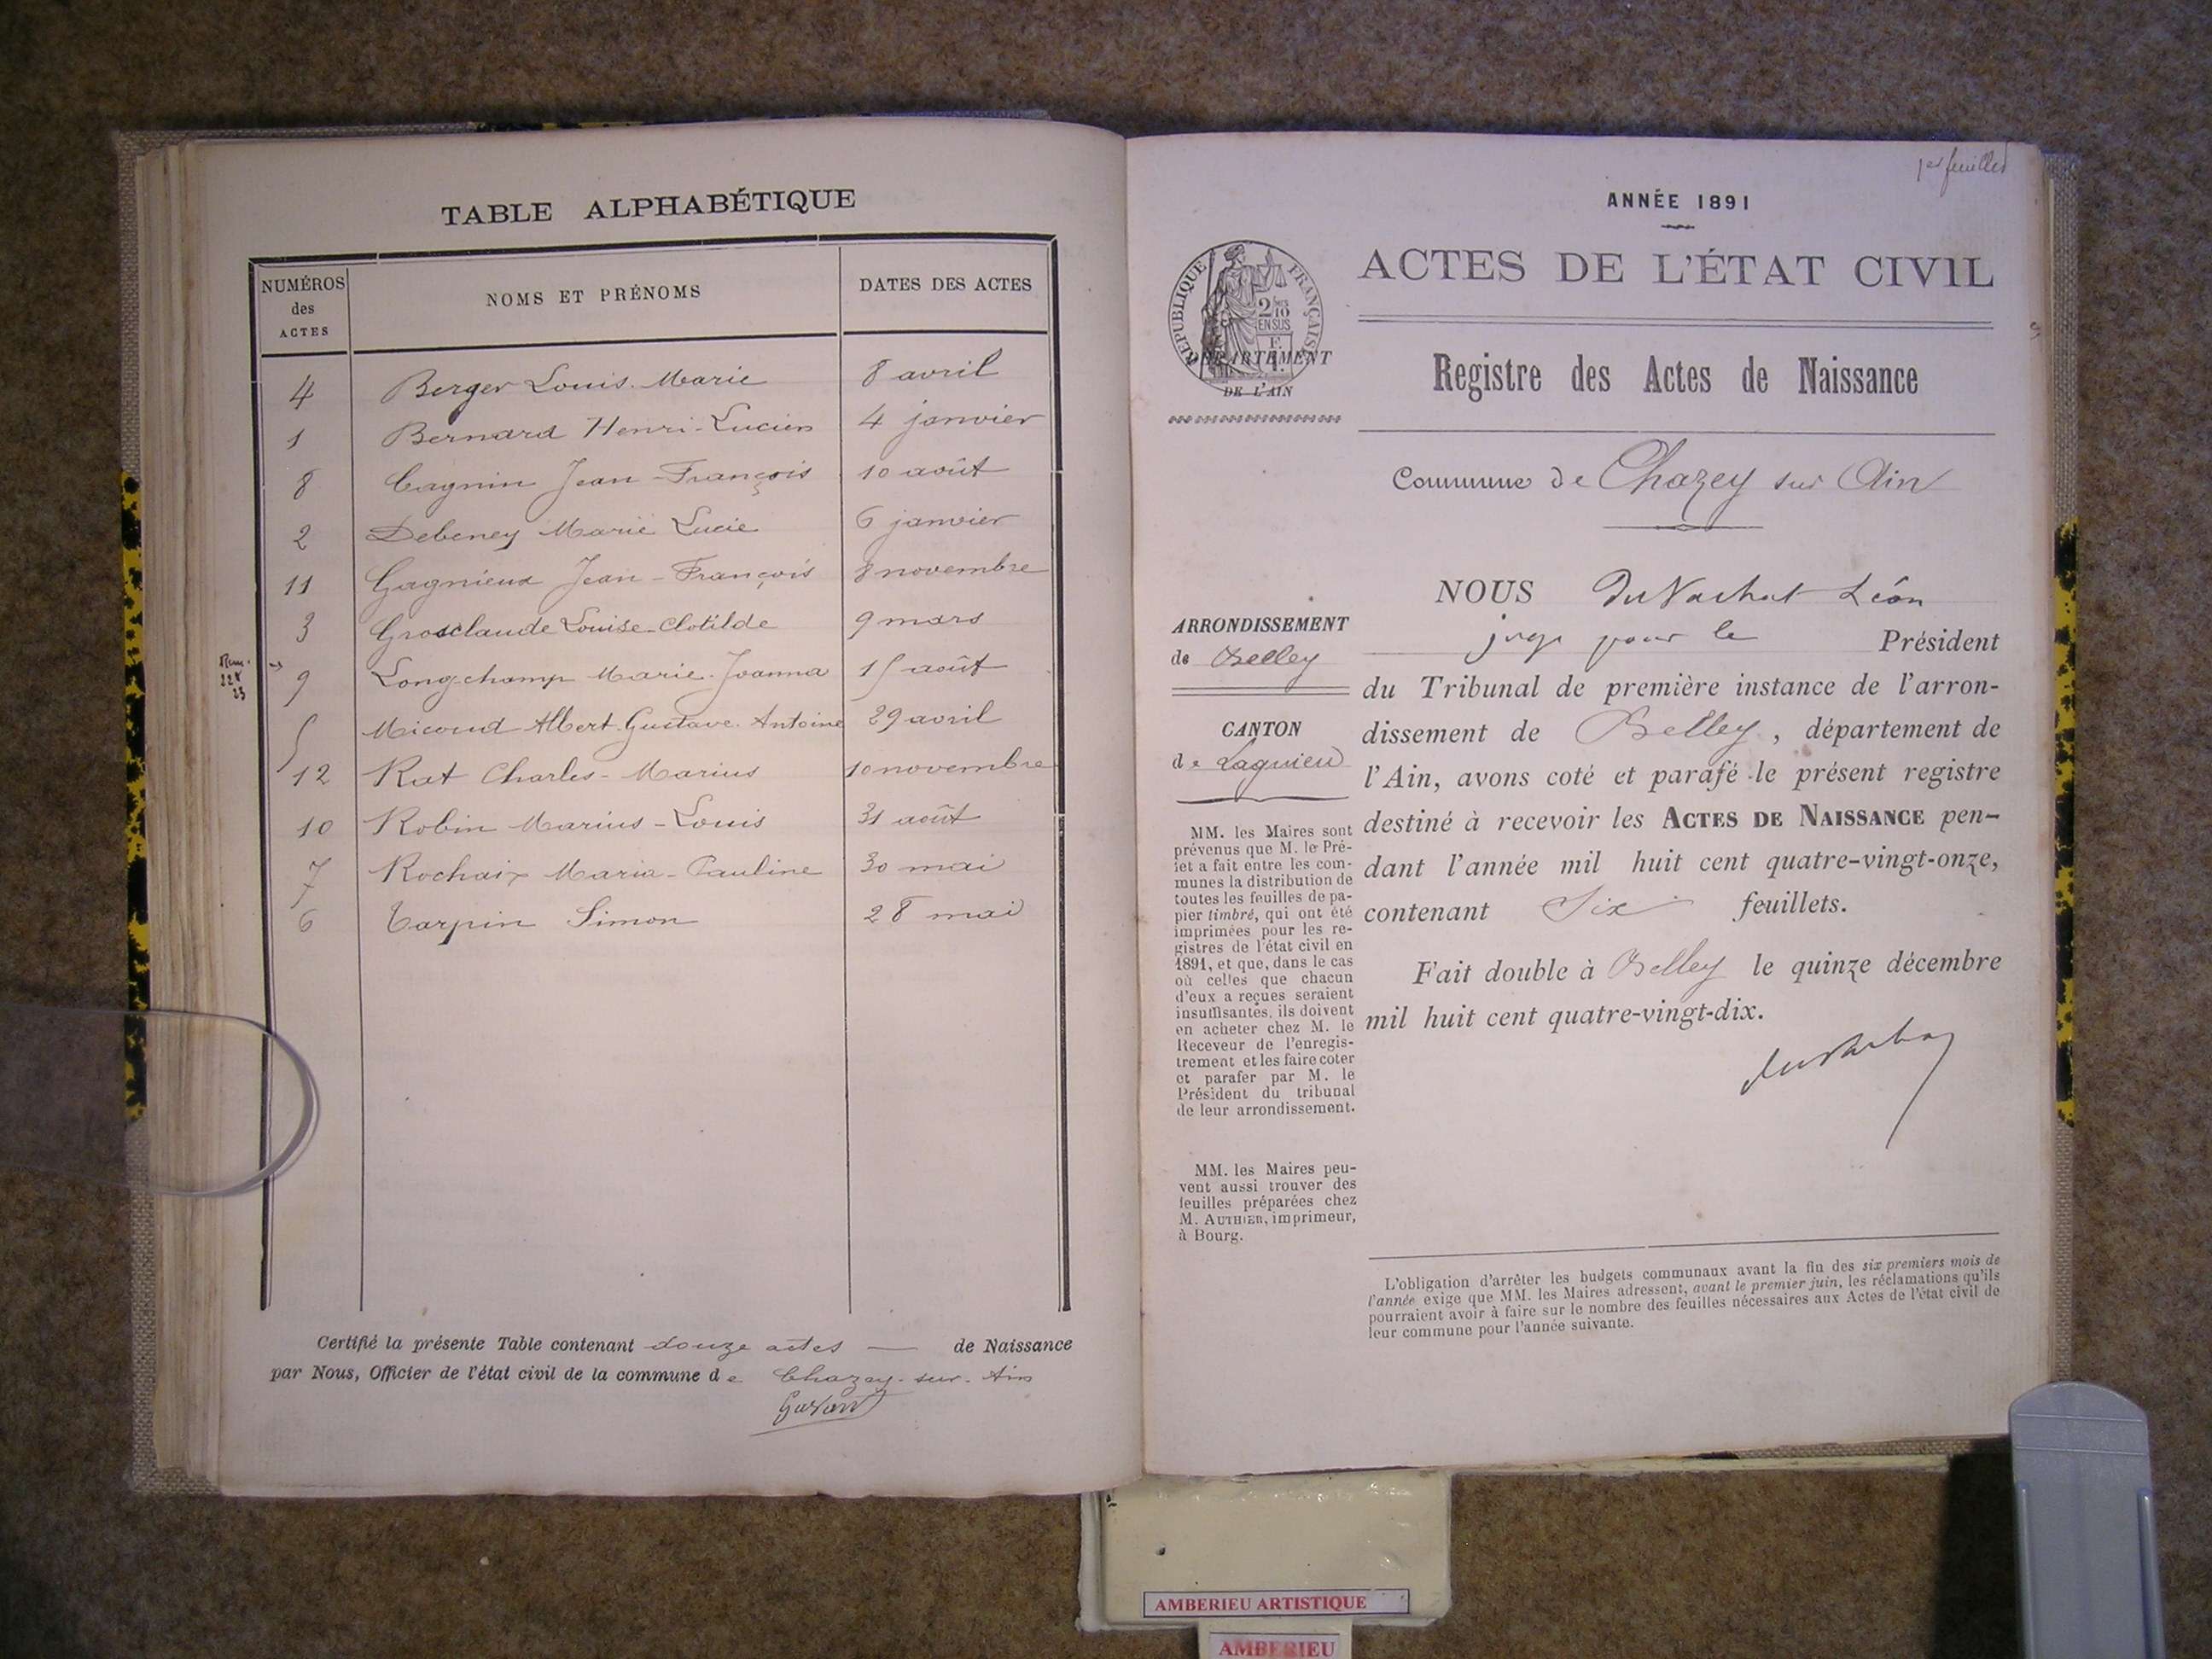 TABLE ALPHABÉTIQUE
NUMÉROS des ACTES NOMS ET PRÉNOMS DATES DES ACTES
4 Berger Louis-Marie 8 avril
1 Bernard Henri-Lucien 4 janvier
8 Cagnin Jean-François 10 août
2 Debeney Marie Lucie 6 janvier
11 Gagnieux Jean-François 8 novembre
3 Grosclaude Louise-Clotilde 9 mars
9 Longchamp Marie-Joanna 15 août
5 Micoud Albert-Gustave-Antoine 29 avril
12 Rat Charles-Marius 10 novembre
10 Robin Marius-Louis 31 août
7 Rochaix Maria-Pauline 30 mai
6 Tarpin Simon 28 mai
Certifié la présente Table contenant douze actes — de Naissance
par Nous, Officier de l'état civil de la commune de Chazey-sur-Ain
1er feuillet
ANNÉE 1891
ACTES DE L'ÉTAT CIVIL
RÉPUBLIQUE FRANÇAISE
2/10
EN SUS
DÉPARTEMENT
DE L'AIN
Registre des Actes de Naissance
Commune de Chazey sur Ain
ARRONDISSEMENT
de Belley
CANTON
de Lagnieu
MM. les Maires sont
prévenus que M. le Pré-
fet a fait entre les com-
munes la distribution de
toutes les feuilles de pa-
pier timbré, qui ont été
imprimées pour les re-
gistres de l'état civil en
1891, et que, dans le cas
où celles que chacun
d'eux a reçues seraient
insuffisantes, ils doivent
en acheter chez M. le
Receveur de l'enregis-
trement et les faire coter
et parafer par M. le
Président du tribunal
de leur arrondissement.
MM. les Maires peu-
vent aussi trouver des
feuilles préparées chez
M. AUTHIER, imprimeur,
à Bourg.
NOUS du Vachat Léon
juge pour le Président
du Tribunal de première instance de l'arron-
dissement de Belley, département de
l'Ain, avons coté et parafé le présent registre
destiné à recevoir les ACTES DE NAISSANCE pen-
dant l'année mil huit cent quatre-vingt-onze,
contenant Six feuillets.
Fait double à Belley le quinze décembre
mil huit cent quatre-vingt-dix.
L'obligation d'arrêter les budgets communaux avant la fin des six premiers mois de
l'année exige que MM. les Maires adressent, avant le premier juin, les réclamations qu'ils
pourraient avoir à faire sur le nombre des feuilles nécessaires aux Actes de l'état civil de
leur commune pour l'année suivante.
AMBERIEU ARTISTIQUE
AMBERIEU